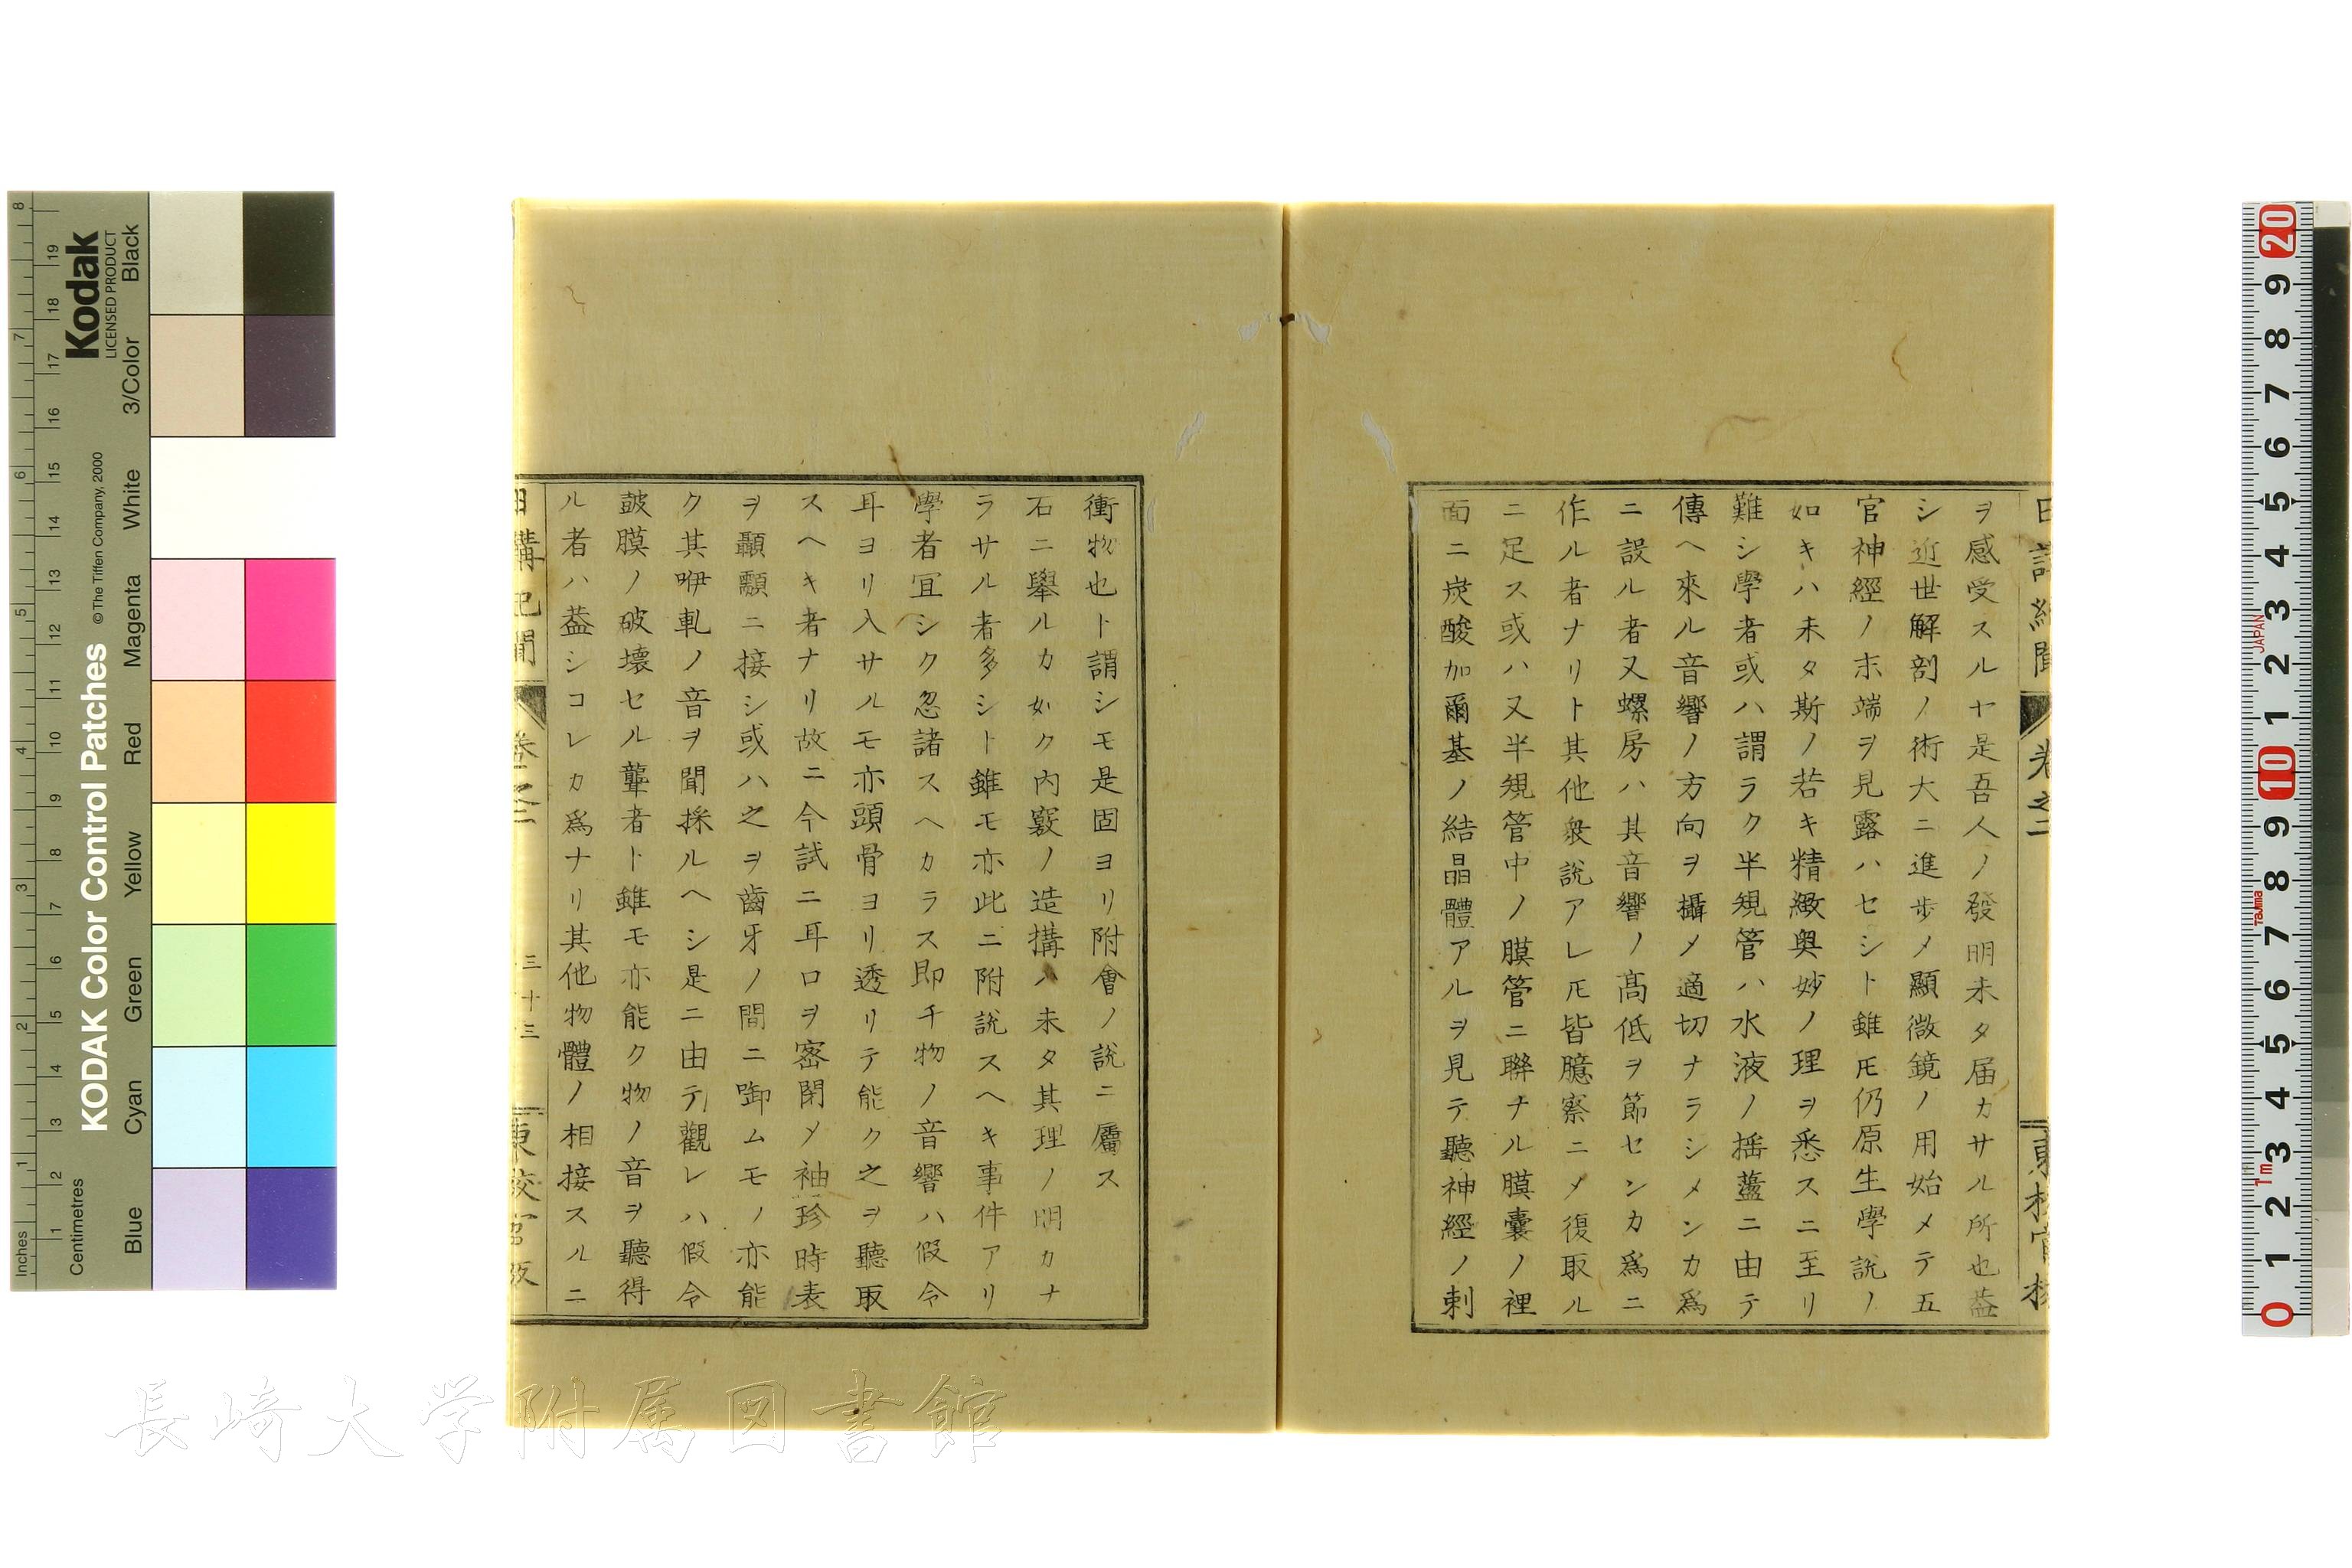 ヲ感受スルヤ是吾人ノ發明未タ届カサル所也葢
シ近世解剖ノ術大ニ進歩メ顯微鏡ノ用始メテ五
官神經ノ末端ヲ見露ハセシト雖𪜈仍原生學説ノ
如キハ未タ斯ノ若キ精緻奥妙ノ理ヲ悉スニ至リ
難シ學者或ハ謂ラク半規管ハ水液ノ揺蘯ニ由テ
傳ヘ來ル音響ノ方向ヲ攝メ適切ナラシメンカ爲
ニ設ル者又螺房ハ其音響ノ髙低ヲ節センカ爲ニ
作ル者ナリト其他衆説アレ𪜈皆臆察ニメ復取ル
ニ足ス或ハ又半規管中ノ膜管ニ聯ナル膜囊ノ裡
面ニ炭酸加爾基ノ結晶體アルヲ見テ聽神經ノ刺
衝物也ト謂シモ是固ヨリ附會ノ説ニ屬ス
石ニ擧ルカ如ク内竅ノ造搆ハ未タ其理ノ明カナ
ラサル者多シト雖モ亦此ニ附説スヘキ事件アリ
學者冝シク忽諸スヘカラス即チ物ノ音響ハ假令
耳ヨリ入サルモ亦頭骨ヨリ透リテ能ク之ヲ聽取
スヘキ者ナリ故ニ今試ニ耳口ヲ密閉メ袖珍時表
ヲ顳顬ニ接シ或ハ之ヲ齒牙ノ間ニ啣ムモノ亦能
ク其咿軋ノ音ヲ聞採ルヘシ是ニ由テ觀レハ假令
皷膜ノ破壊セル聾者ト雖モ亦能ク物ノ音ヲ聽得
ル者ハ葢シコレカ爲ナリ其他物體ノ相接スルニ
日講記聞
卷之二
三十三
東校官板
Kodak
LICENSED PRODUCT
KODAK Color Control Patches
© The Tiffen Company, 2000
Inches
Centimetres
Blue
Cyan
Green
Yellow
Red
Magenta
White
3/Color
Black
JAPAN
Tajima
1m
長崎大学附属図書館